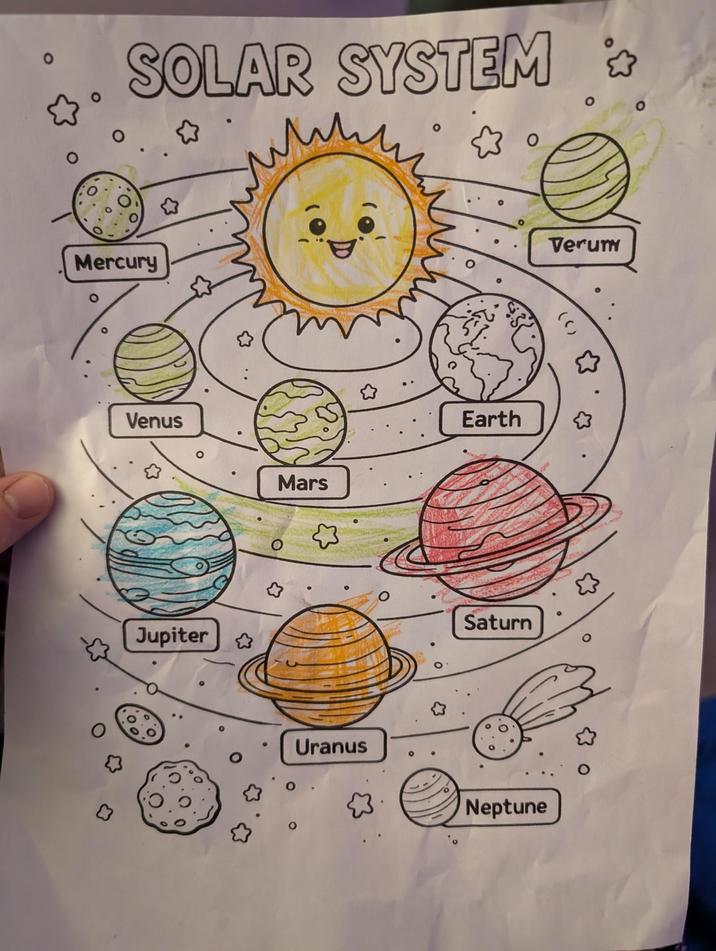 SOLAR SYSTEM
Mercury
Verum
Venus
Earth
Mars
Jupiter
Saturn
Uranus
Neptune